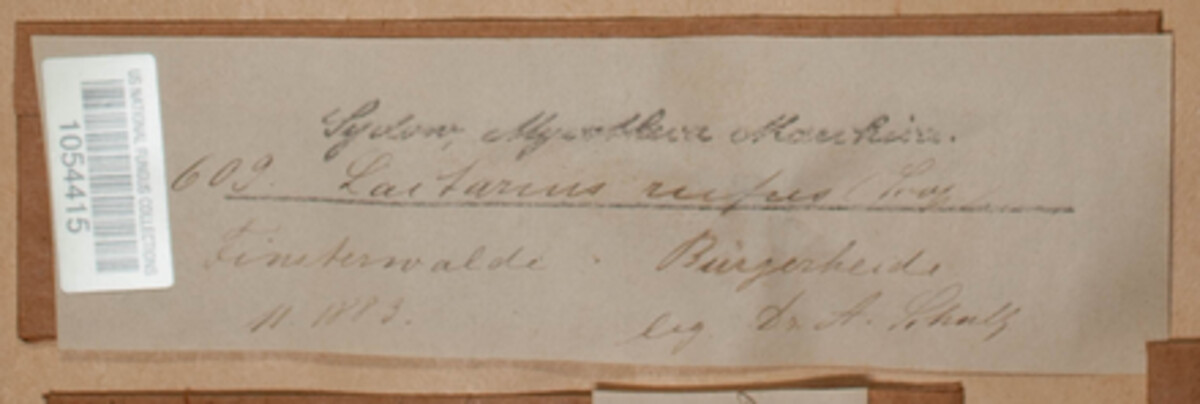 US NATIONAL FUNGUS COLLECTIONS
1054415
Sydow, Mycotheca Marchica.
609. Lactarius rufus (Scop.)
Finsterwalde - Bürgerheide
11. 1883.
leg. Dr. A. Schultz